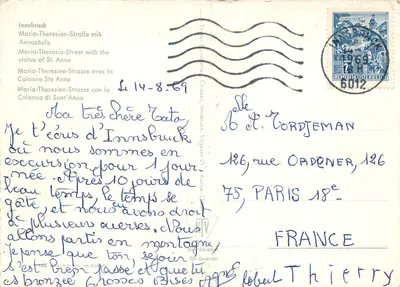 Innsbruck
Maria-Theresien-Straße mit
Annasäule
Maria-Theresia-Street with the
statue of St. Anne
Maria-Theresien-Strasse avec la
Colonne Ste Anne
Maria-Theresien-Strasse con la
Colonna di Sant'Anna
INNSBRUCK
1969
6012
REPUBLIK ÖSTERREICH
le 14-8-69
Ma très chère Tata,
Je t'écris d'Innsbruck
où nous sommes en
excursion pour 1 jour-
née. Après 10 jours de
beau temps, le temps se
gâte, et nous avons droit
à plusieurs averses. Nous
allons partir en montagne
Je pense que ton séjour
s'est bien passé et que tu
es bronzée. Grosses bises
Robert Thierry
Mlle
TORDJEMAN
126, rue ORDENER, 126
75, PARIS 18e
FRANCE